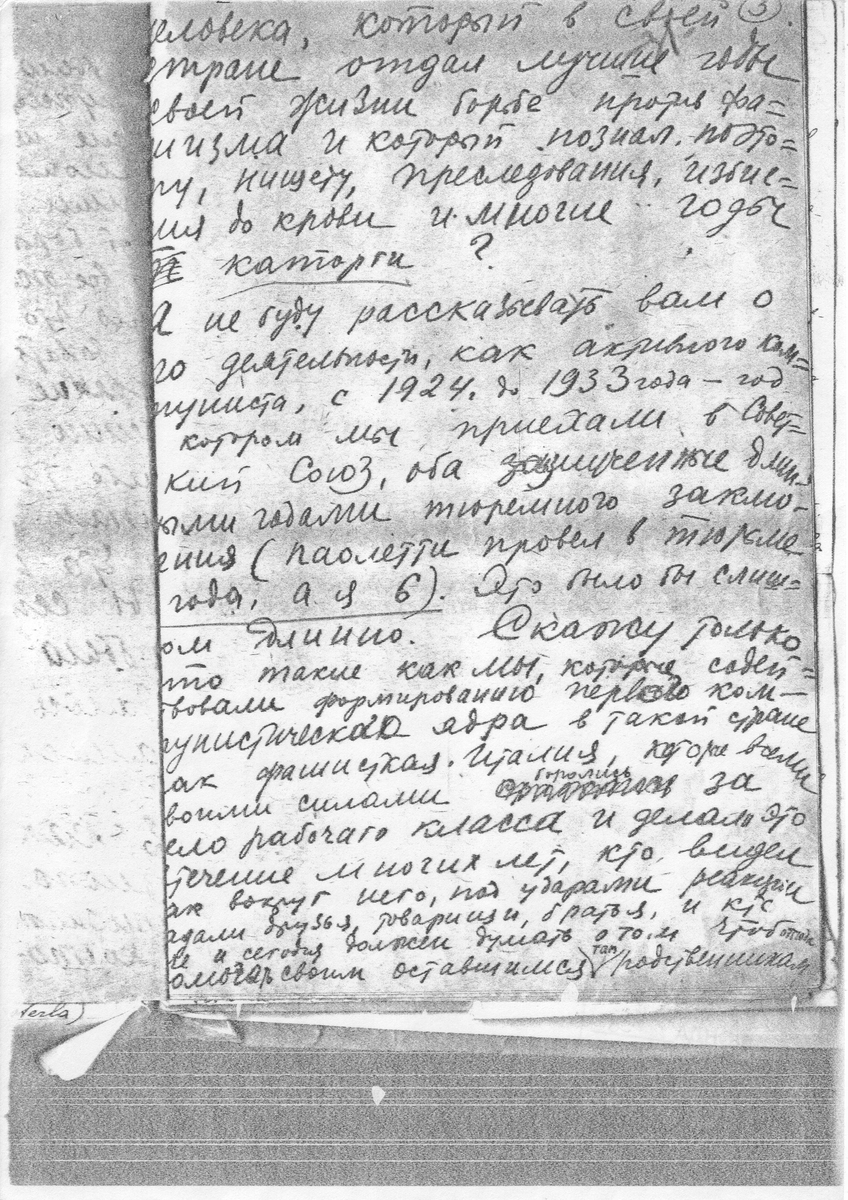 еловека, который в своей 3.
стране отдал лучшие годы
своей жизни борбе против фа=
шизма и который познал, поэто=
му, нищету, преследования, избие=
ния до крови и многие годы
каторги ?
Я не буду рассказывать вам о
го деятельности, как активного ком=
муниста, с 1924. до 1933 года – год
котором мы приехали в Совет=
кий Союз, оба измученные длин-
ыми годами тюремного заклю-
ения (Паолетти провел в тюрьме
года, а я 6). Это было бы слиш=
ом длинно. Скажу только
то такие как мы, которые содей=
твовали формированию первого ком-
унистического ядра в такой стране
ак фашисткая Италия, которые всеми
воими силами боролись за
ело рабочаго класса и делали это
течение многих лет, кто видел
ак вокруг него, под ударами реакции
адали друзья, товарищи, братья, и кто
е и сегодня должен думать о том чтоб отсюда
омогать своим оставшимся там родственникам
Terla)